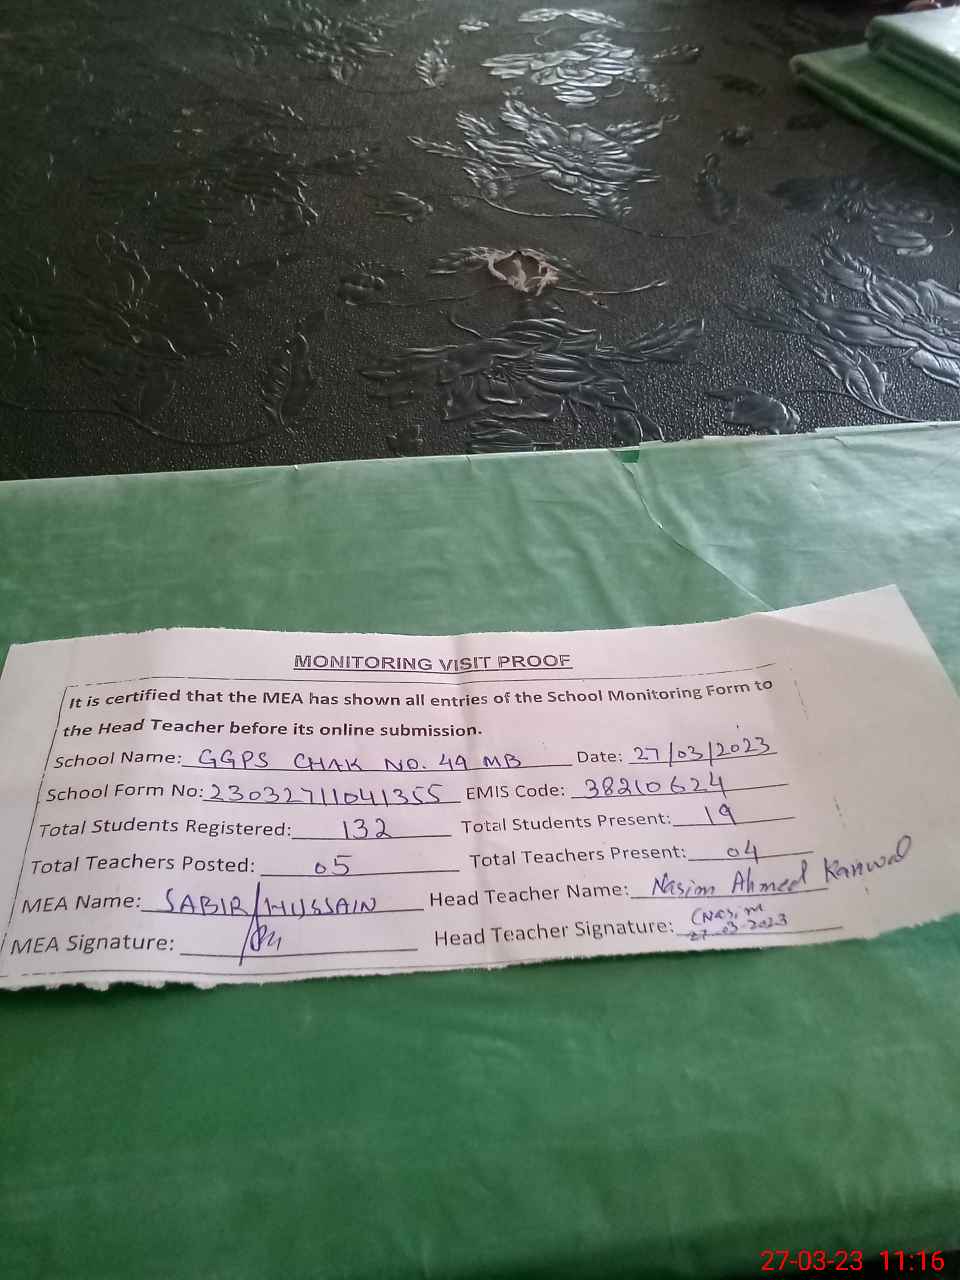 MONITORING VISIT PROOF
It is certified that the MEA has shown all entries of the School Monitoring Form to
the Head Teacher before its online submission.
School Name: GGPS CHAK NO. 49 MB Date: 27/03/2023
School Form No: 23032711041355 EMIS Code: 38210624
Total Students Registered: 132 Total Students Present: 19
Total Teachers Posted: 05 Total Teachers Present: 04
MEA Name: SABIR HUSSAIN Head Teacher Name: Nasim Ahmed Kanwal
MEA Signature: Head Teacher Signature: Nasim
27-03-2023
27-03-23 11:16